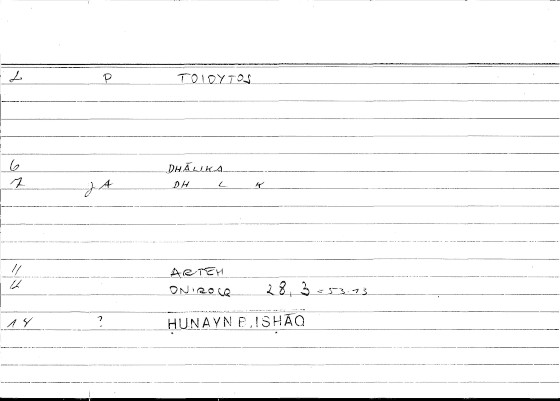 1 P TOIOYTOS
6 DHĀLIKA
7 jA DH L K
11 ARTEM
ONIROCR 28, 3 = 53-13
14 ? ḤUNAYN B. ISḤĀQ